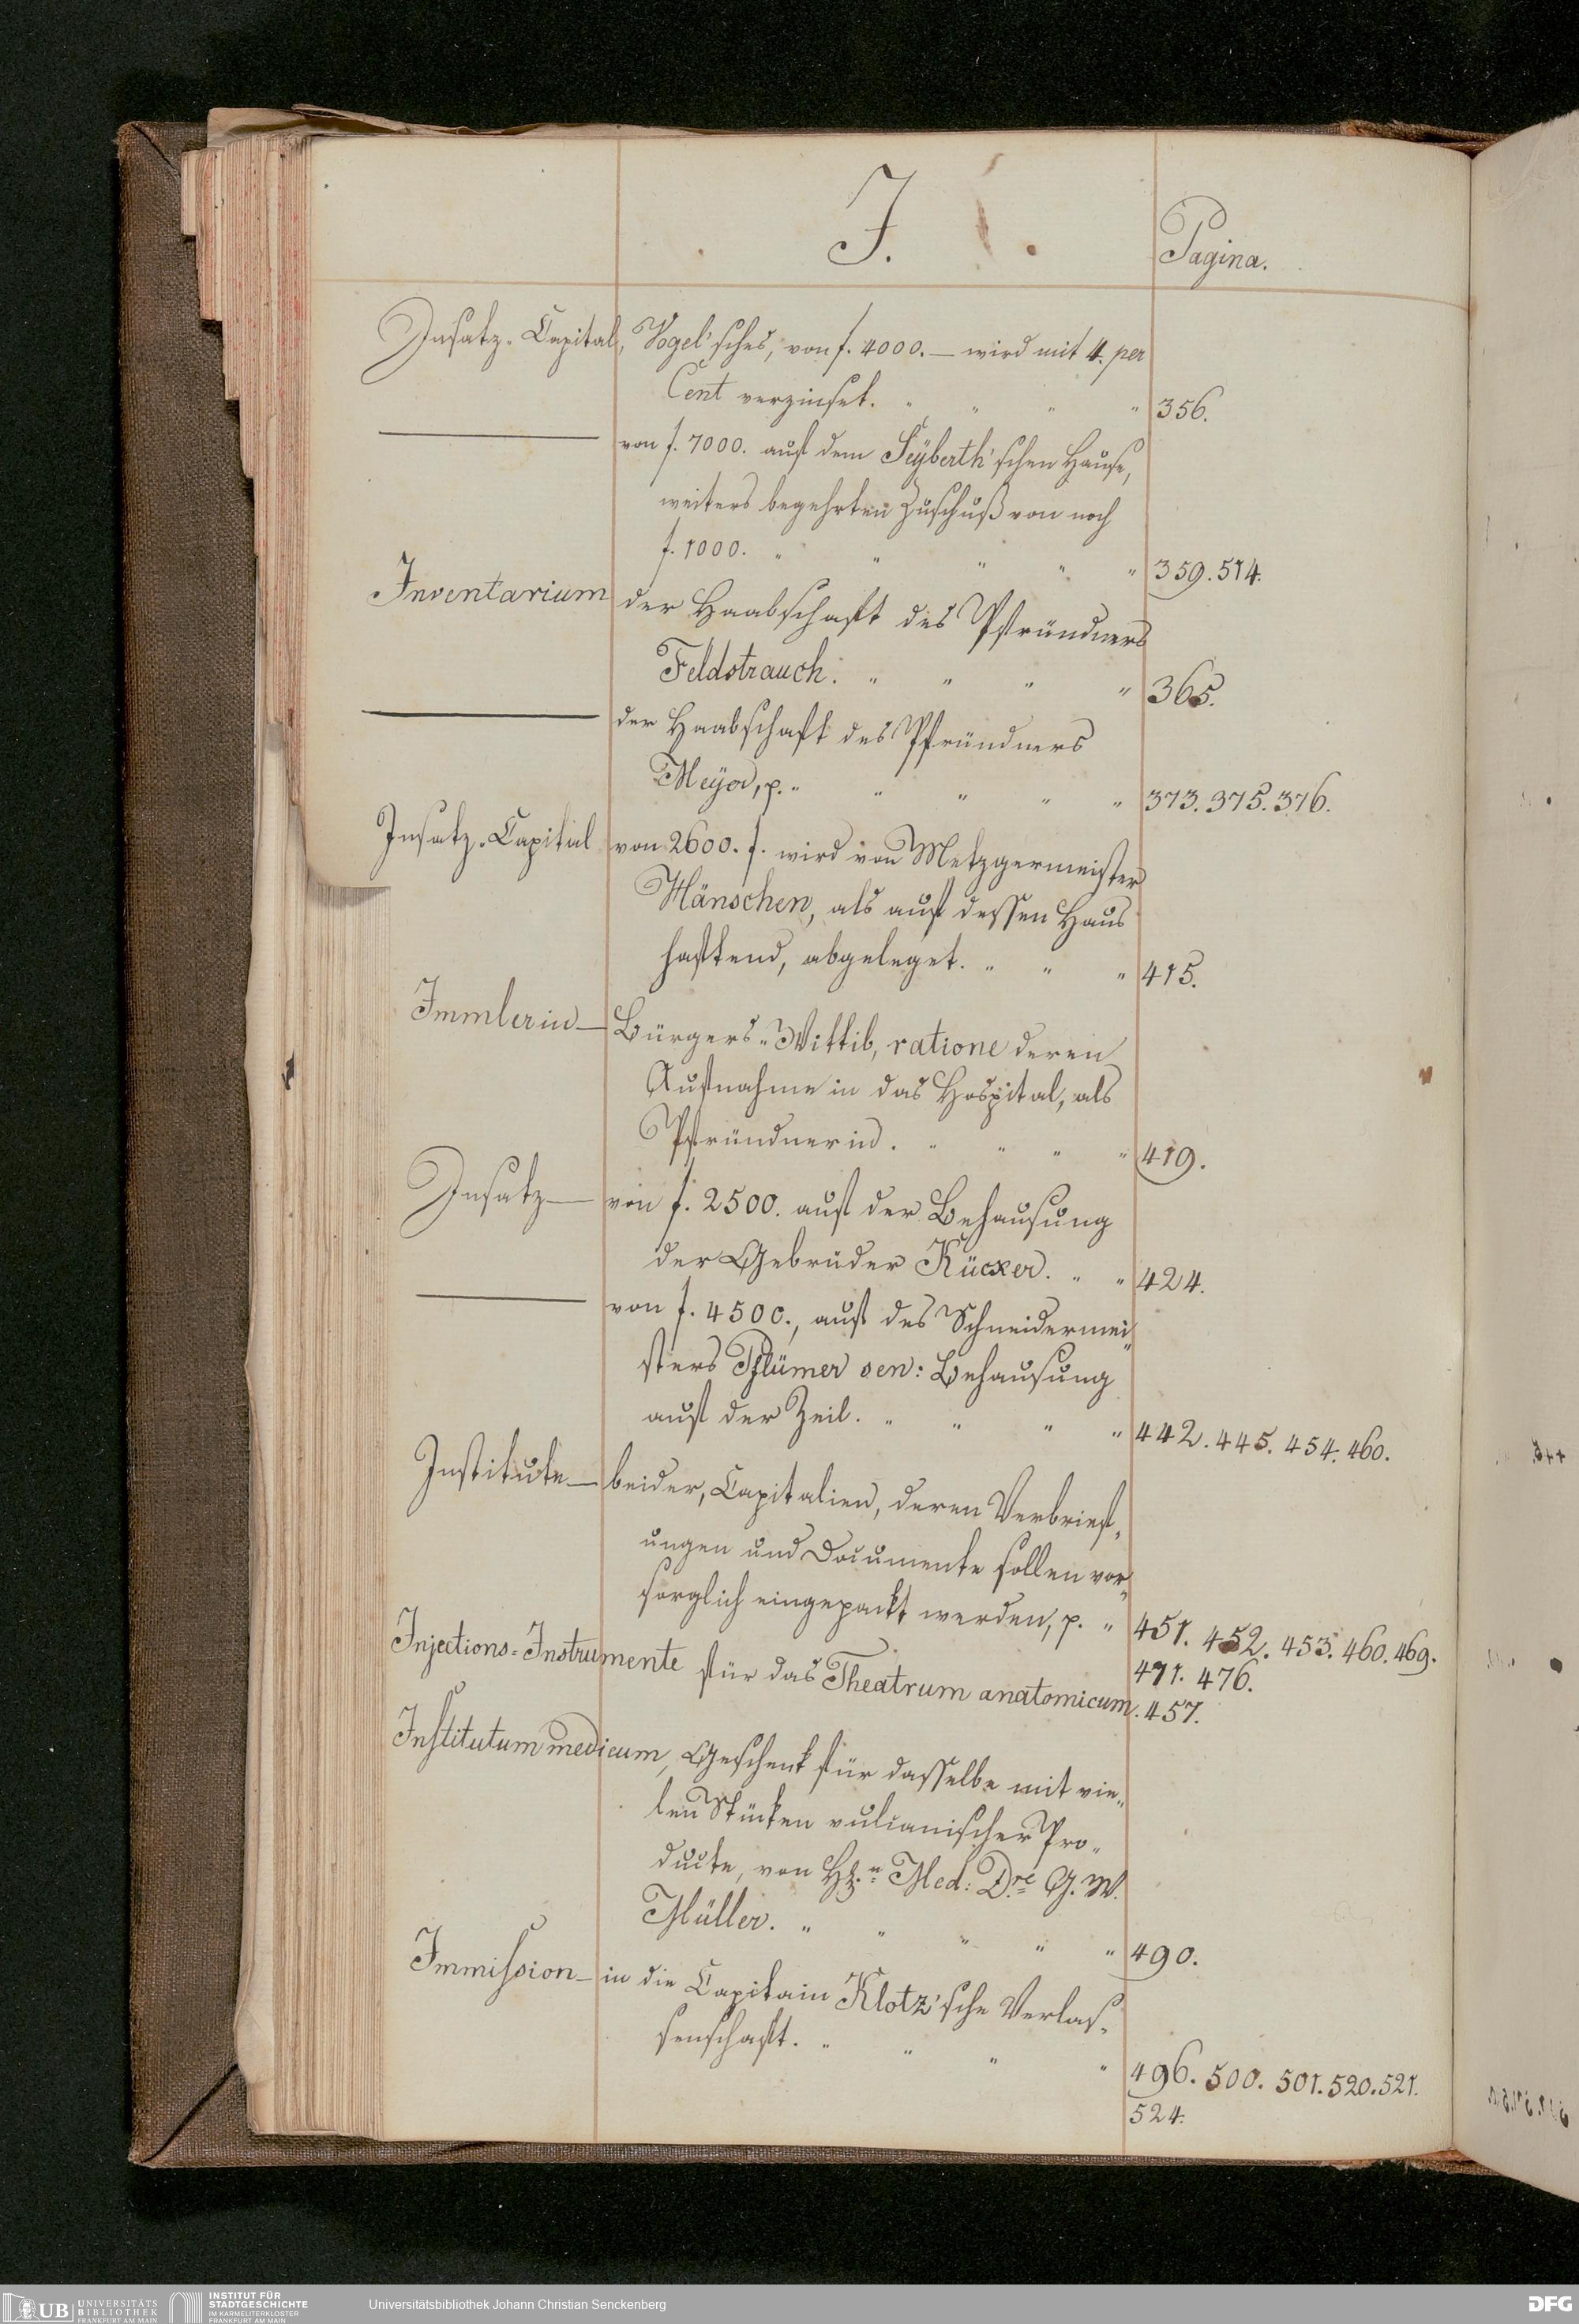 J.
Pagina.
Insatz-Capital, Vogel'sches, von f. 4000.— wird mit 4. per
Cent verzinset. " " " " 356.
——— von f. 7000. auf dem Seÿberth'schen Hause,
weiters begehrten Zuschuß von noch
f. 1000. " " " " " 359. 514.
Inventarium der Haabschaft des Pfründners
Feldstrauch. " " " " 365.
——— der Haabschaft des Pfründners
Meÿer, p. " " " " " 373. 375. 376.
Insatz-Capital von 2600. f. wird von Metzgermeister
Hänschen, als auf dessen Haus
haftend, abgeleget. " " " 415.
Immlerin— Bürgers-Wittib, ratione deren
Aufnahme in das Hospital, als
Pfründnerin. " " " " 419.
Insatz— von f. 2500. auf der Behausung
der Gebrüder Kücker. " " 424.
——— von f. 4500., auf des Schneidermei"
sters Pflümer sen: Behausung
auf der Zeil. " " " " 442. 445. 454. 460.
Institute— beider, Capitalien, deren Verbrief"
ungen und Documente sollen vor"
sorglich eingepackt werden, p. " 451. 452. 453. 460. 469.
471. 476.
Injections-Instrumente für das Theatrum anatomicum. 457.
Institutum medicum, Geschenk für dasselbe mit vie"
len Stücken vulcanischer Pro"
ducte, von H. Med: Dre G. W.
Müller. " " " " " 490.
Immission— in die Capitain Klotz'sche Verlas"
senschaft. " " " " 496. 500. 501. 520. 521.
524.
UB UNIVERSITÄTS
BIBLIOTHEK
FRANKFURT AM MAIN
INSTITUT FÜR
STADTGESCHICHTE
IM KARMELITERKLOSTER
FRANKFURT AM MAIN
Universitätsbibliothek Johann Christian Senckenberg
DFG